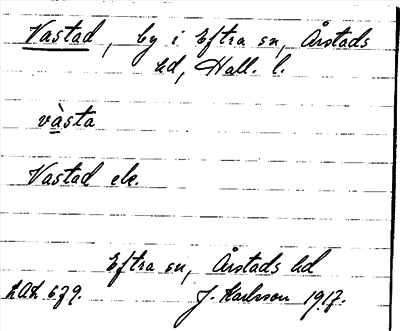 Vastad, by i Eftra sn, Årstads
hd, Hall. l.
vàsta
Vastad ek.
Eftra sn, Årstads hd
LAL 679. J. Karlsson 1917.